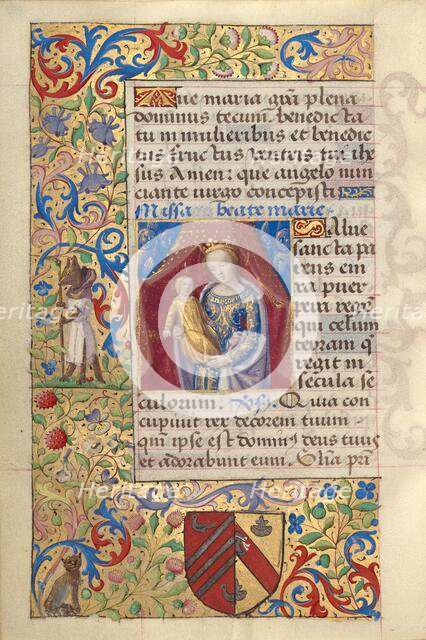 Aue maria gr̄a plena
dominus tecum. benedicta
tu in mulieribus et benedic
tus fructus uentris tui ihe
sus Amen: que angelo nun
ciante uirgo concepisti
Missa beate marie
Salue
sancta pa
rens eni
xa puer
pera regē
qui celum
terram q̄
regit in
secula se
culorum. Quia con
cupiuit rex decorem tuum
qm̄ ipse est domin9 deus tuus
et adorabunt eum. Gl̄ia pr̄i
Heritage
Images